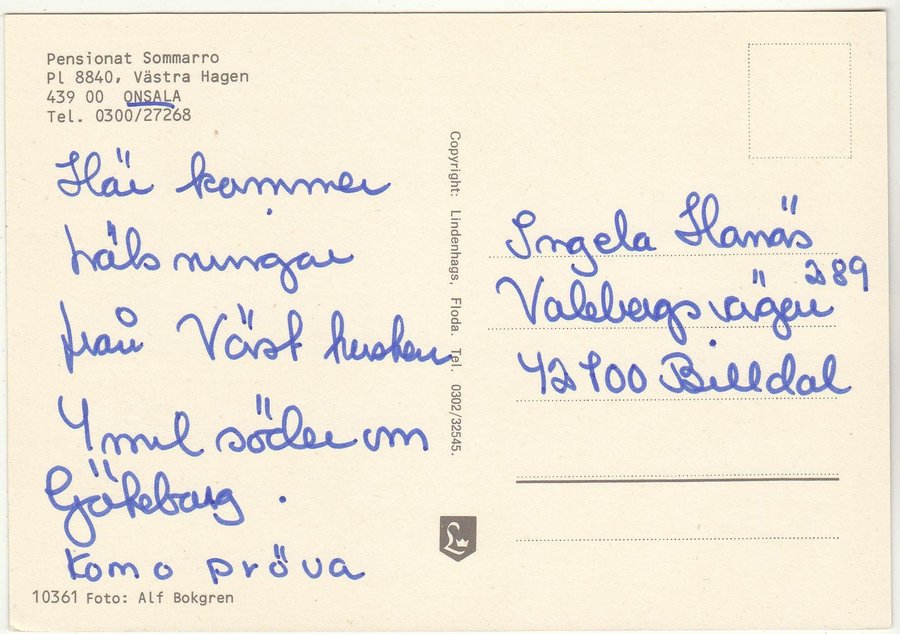 Pensionat Sommarro
Pl 8840, Västra Hagen
439 00 ONSALA
Tel. 0300/27268
Här kommer
hälsningar
från Väst kusten
4 mil söder om
Göteborg.
komo pröva
10361 Foto: Alf Bokgren
Copyright: Lindenhags, Floda. Tel. 0302/32545.
L
Ingela Hanäs
Valebergsvägen 289
42700 Billdal